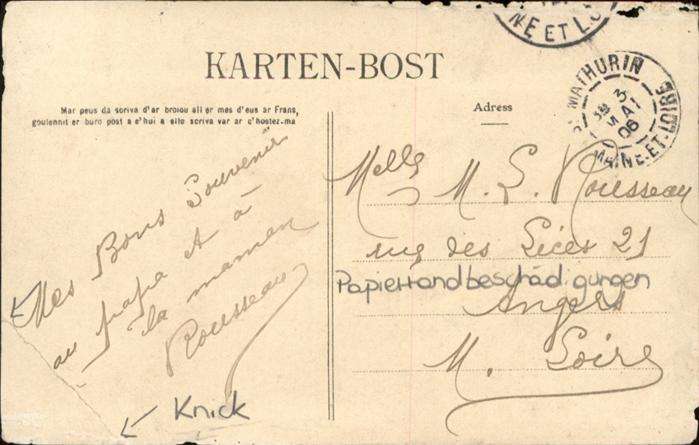 NE ET L
KARTEN-BOST
Mar peus da scriva d'ar broiou all er mes d'eus ar Frans,
goulennit er buro post a e'hui a elle scriva var ar c'hostez-ma
Adress
MATHURIN
3
MAI
06
MAINE-ET-LOIRE
Mes Bons Souvenirs
au papa et à
la maman
Rousseau
Melle M. L. Rousseau
rue des Lices 21
Papierrandbeschädigungen
Angers
M. Loire
← Knick